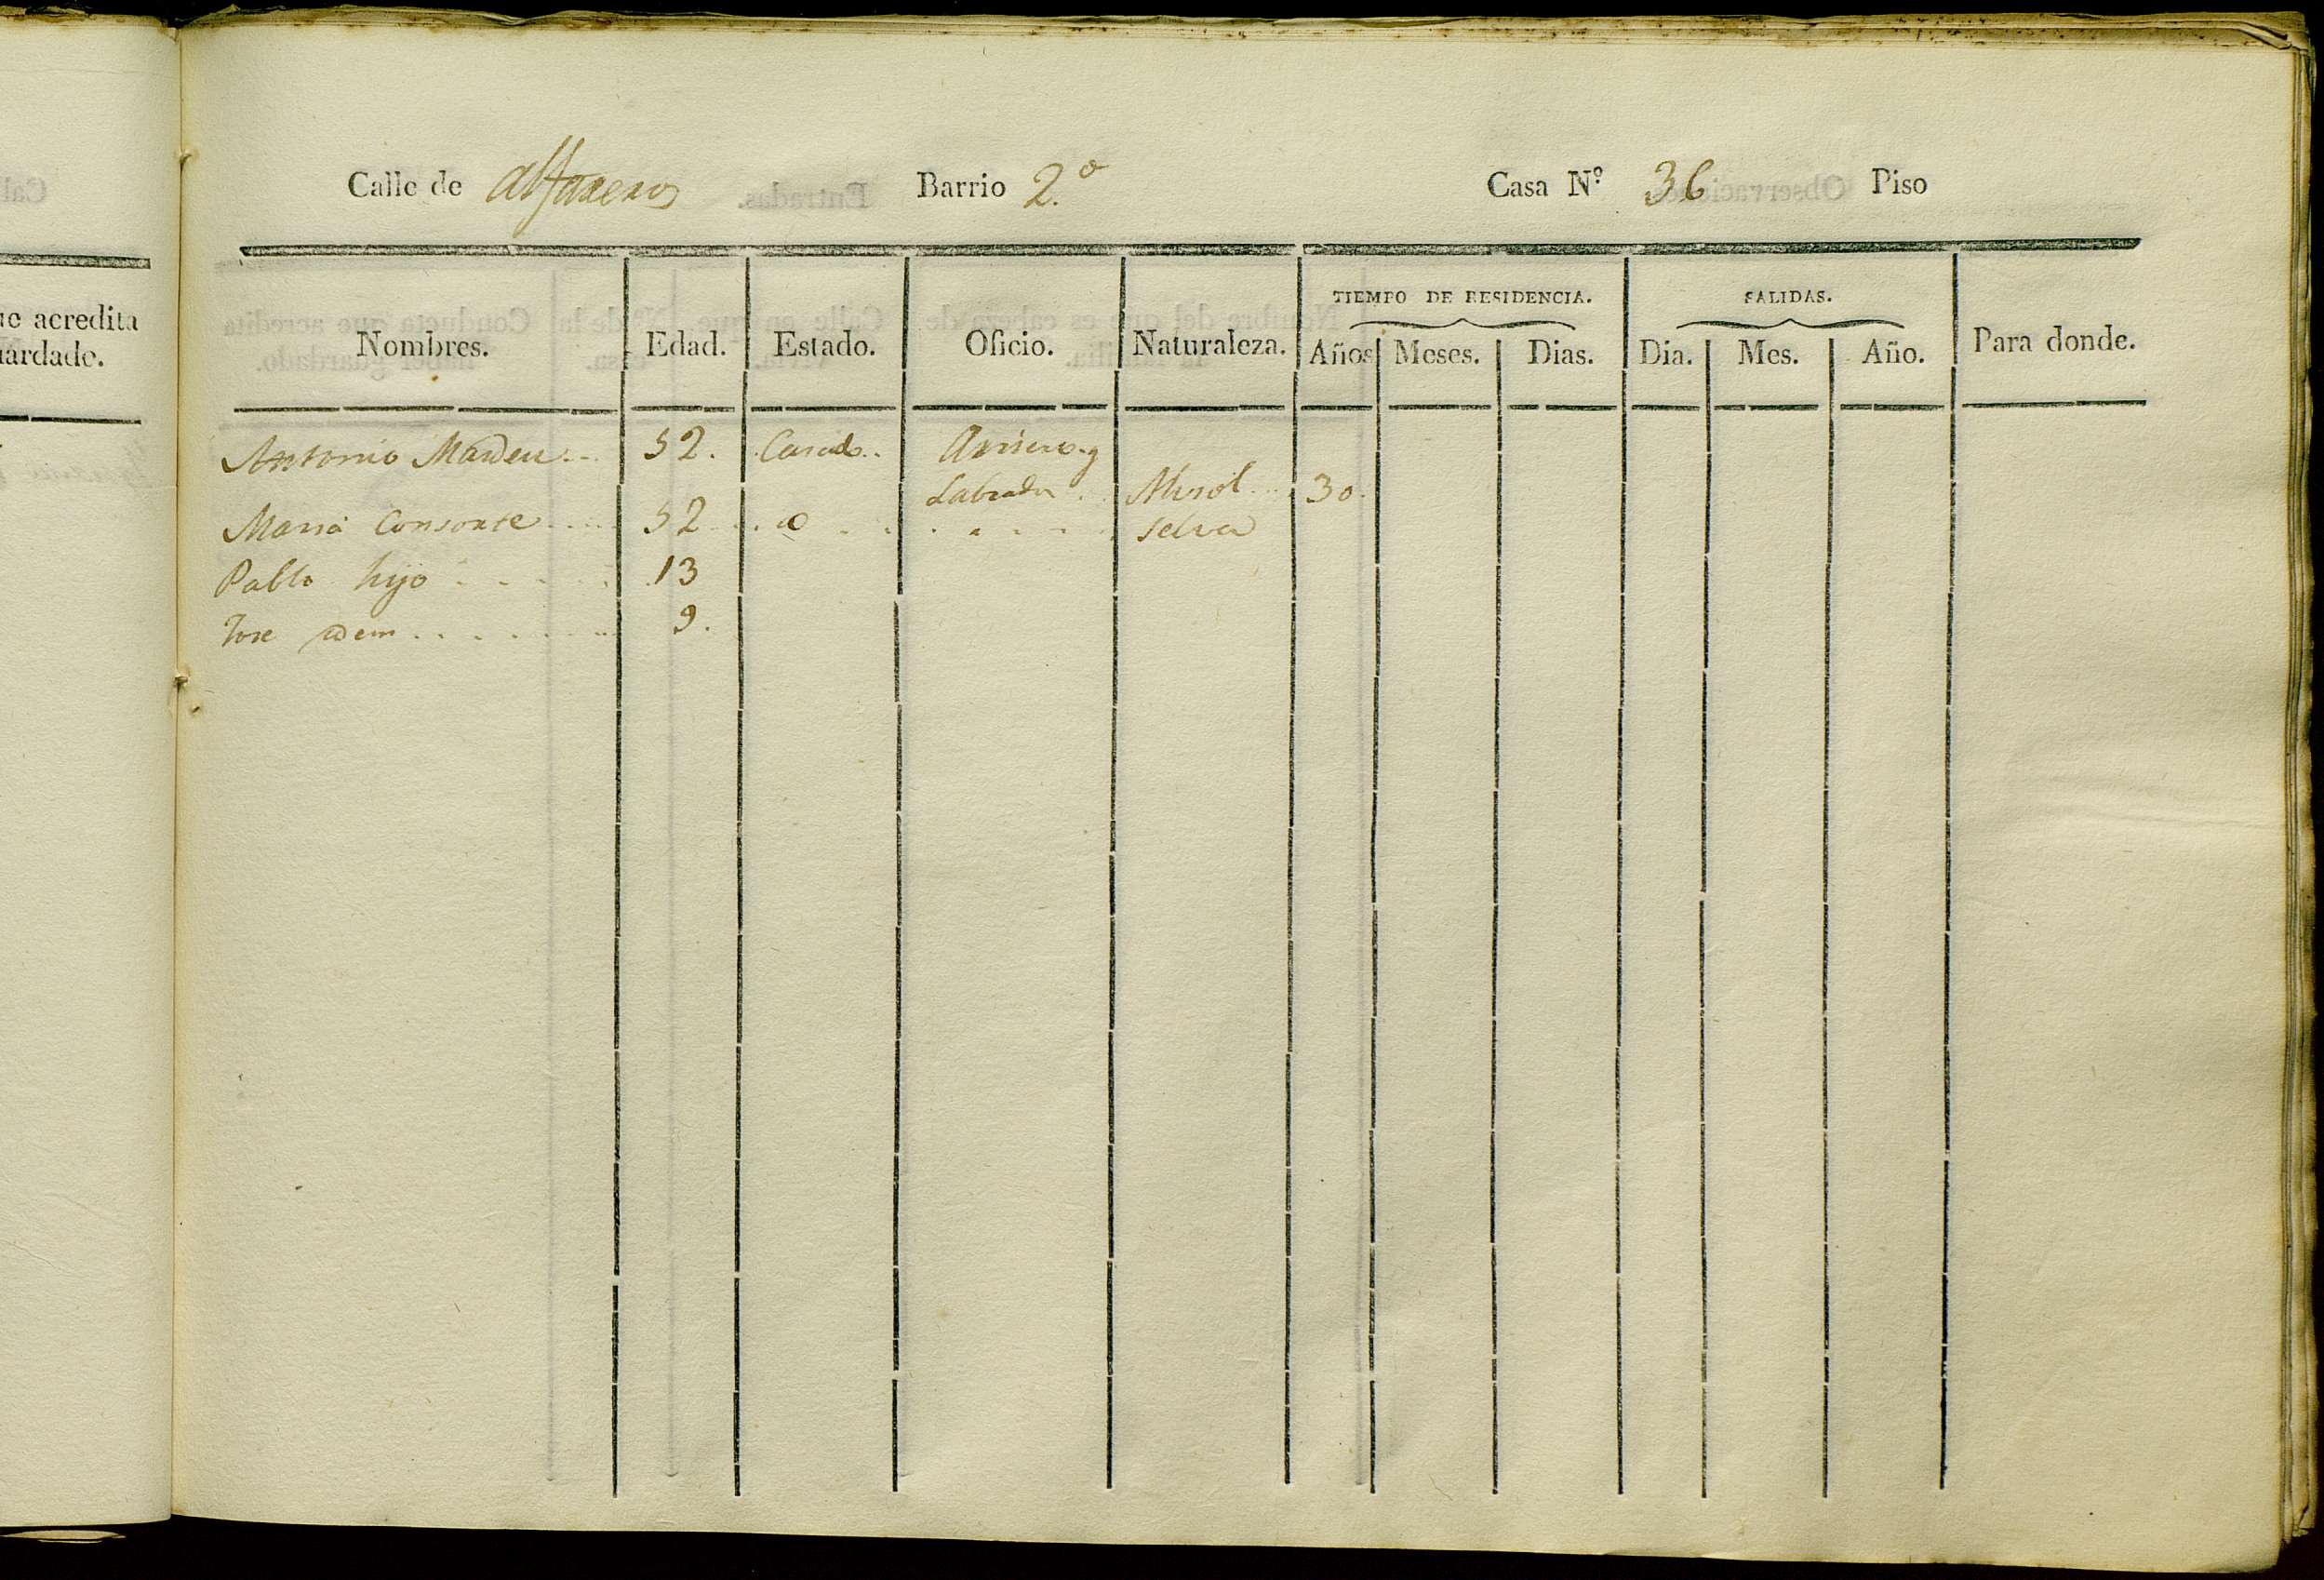 Calle de alfareros Barrio 2.º Casa Nº 36 Piso
ue acredita
uardado.
TIEMPO DE RESIDENCIA. SALIDAS.
Nombres. Edad. Estado. Oficio. Naturaleza. Años Meses. Dias. Dia. Mes. Año. Para donde.
Antonio 52. Casado.. Arriero y
Labrador . 30.
Maria Consorte 52 Selva
Pablo hijo 13
Jose idem 9.